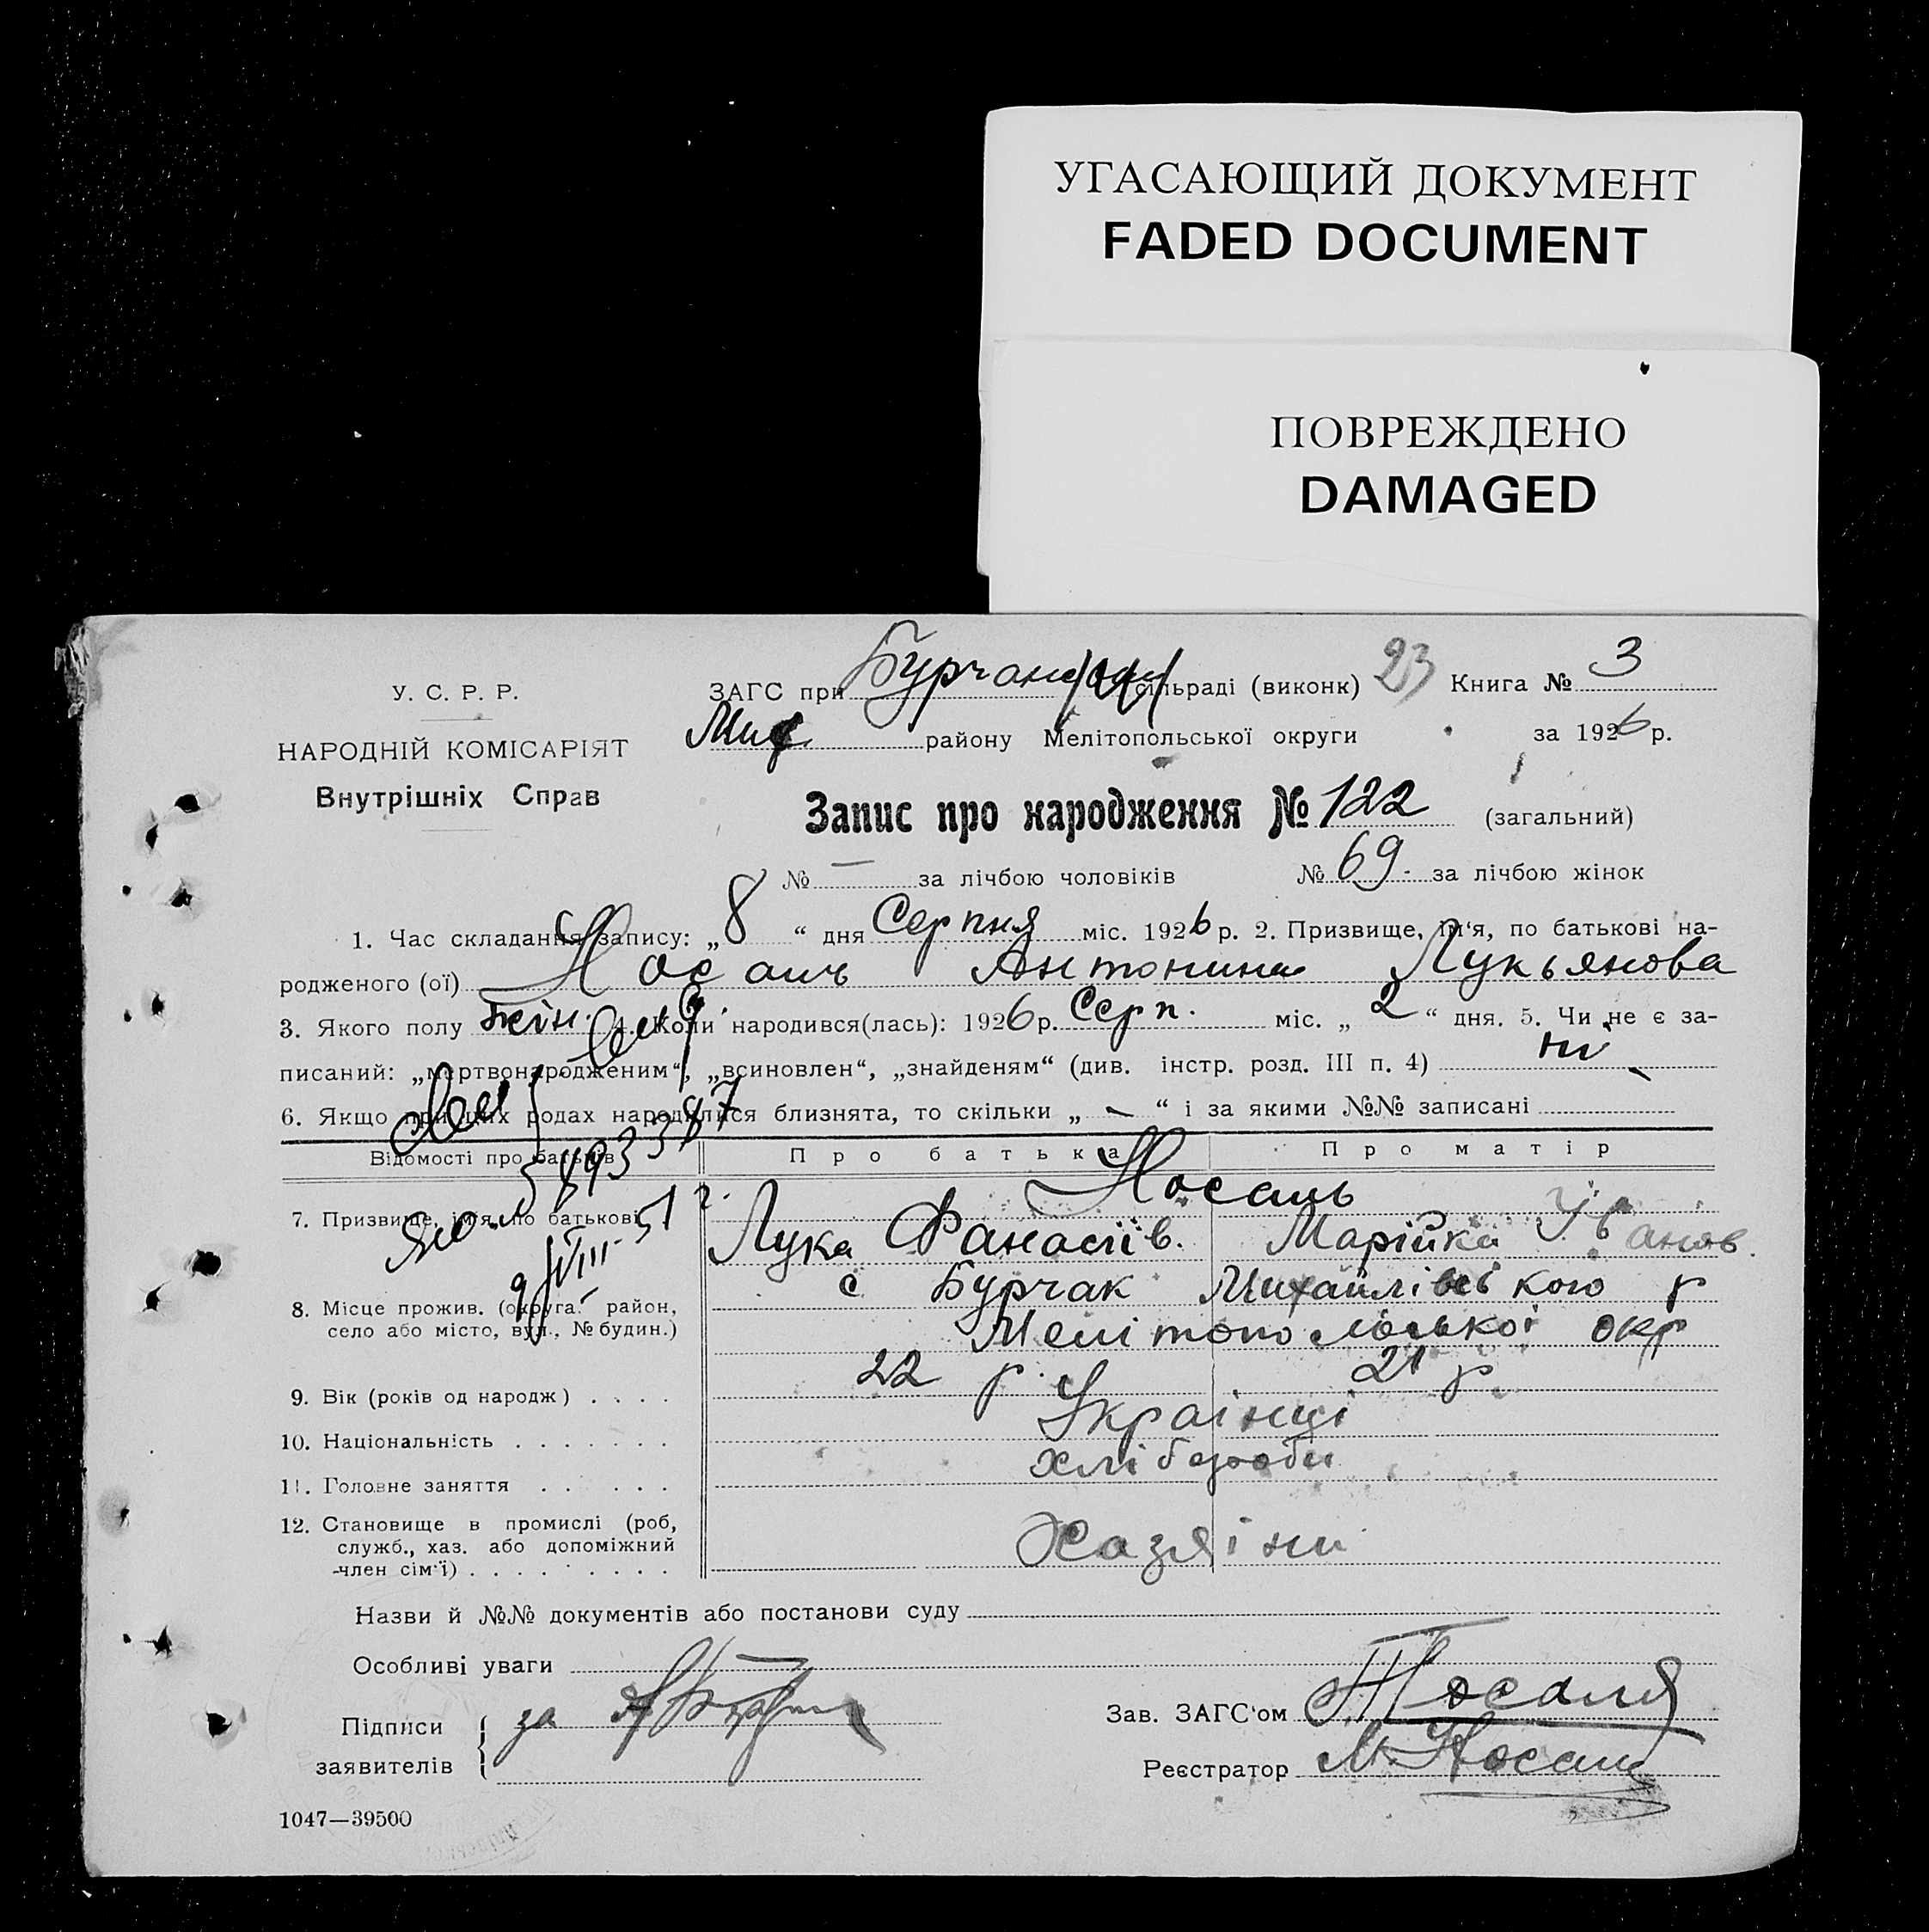 УГАСАЮЩИЙ ДОКУМЕНТ
FADED DOCUMENT
ПОВРЕЖДЕНО
DAMAGED
У. С. Р. Р.
НАРОДНІЙ КОМІСАРІЯТ
Внутрішніх Справ
ЗАГС при сільраді (виконк) 23 Книга № 3
Мих району Мелітопольської округи за 1926 р.
Запис про народження № 122 (загальний)
№ — за лічбою чоловіків № 69. за лічбою жінок
1. Час складання запису: „8“ дня Серпня міс. 1926 р. 2. Призвище, ім'я, по батькові на-
родженого (ої) Носань Антонина Лукьянова
3. Якого полу жін. 4. Коли народився(лась): 1926 р. Серп. міс. „2“ дня. 5. Чи не є за-
писаний: „мертвонародженим“, „всиновлен“, „знайденям“ (див. інстр. розд. III п. 4) ні
6. Якщо при цих родах народилися близнята, то скільки „—“ і за якими №№ записані
Відомості про батьків Про батька Про матір
Носань
7. Призвище, ім'я, по батькові Лука Фанасіїв. Марійка Іванов.
8. Місце прожив. (округа, район, село або місто, вул., № будин.) с Бурчак Михайлівського р
Мелітопольської окр
9. Вік (років од народж) . . . . 22 р. 21 р
10. Національність . . . . . . . Українці
11. Головне заняття . . . . . . хлібороби
12. Становище в промислі (роб, служб., хаз. або допоміжний член сім'ї) . . . . . . . . . Хазяіни
Назви й №№ документів або постанови суду
Особливі уваги
Підписи заявителів за
Зав. ЗАГС'ом
Реєстратор М. Носань
9/VIII-51 г.
1047—39500